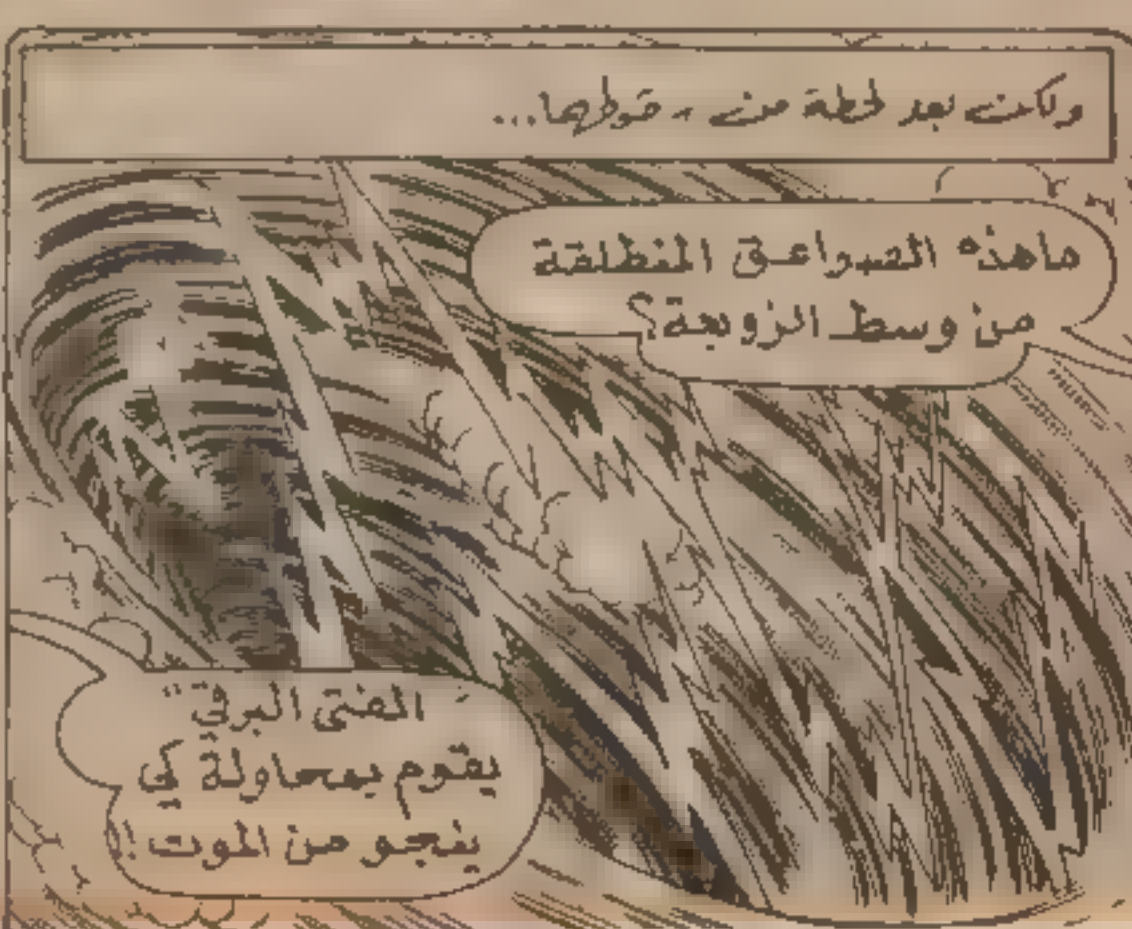 ولكن بعد لحظة من سقوطها...
ما هذه الصواعق المنطلقة
من وسط الزوبعة؟
"الفتى البرقي"
يقوم بمحاولة كي
ينجو من الموت!!